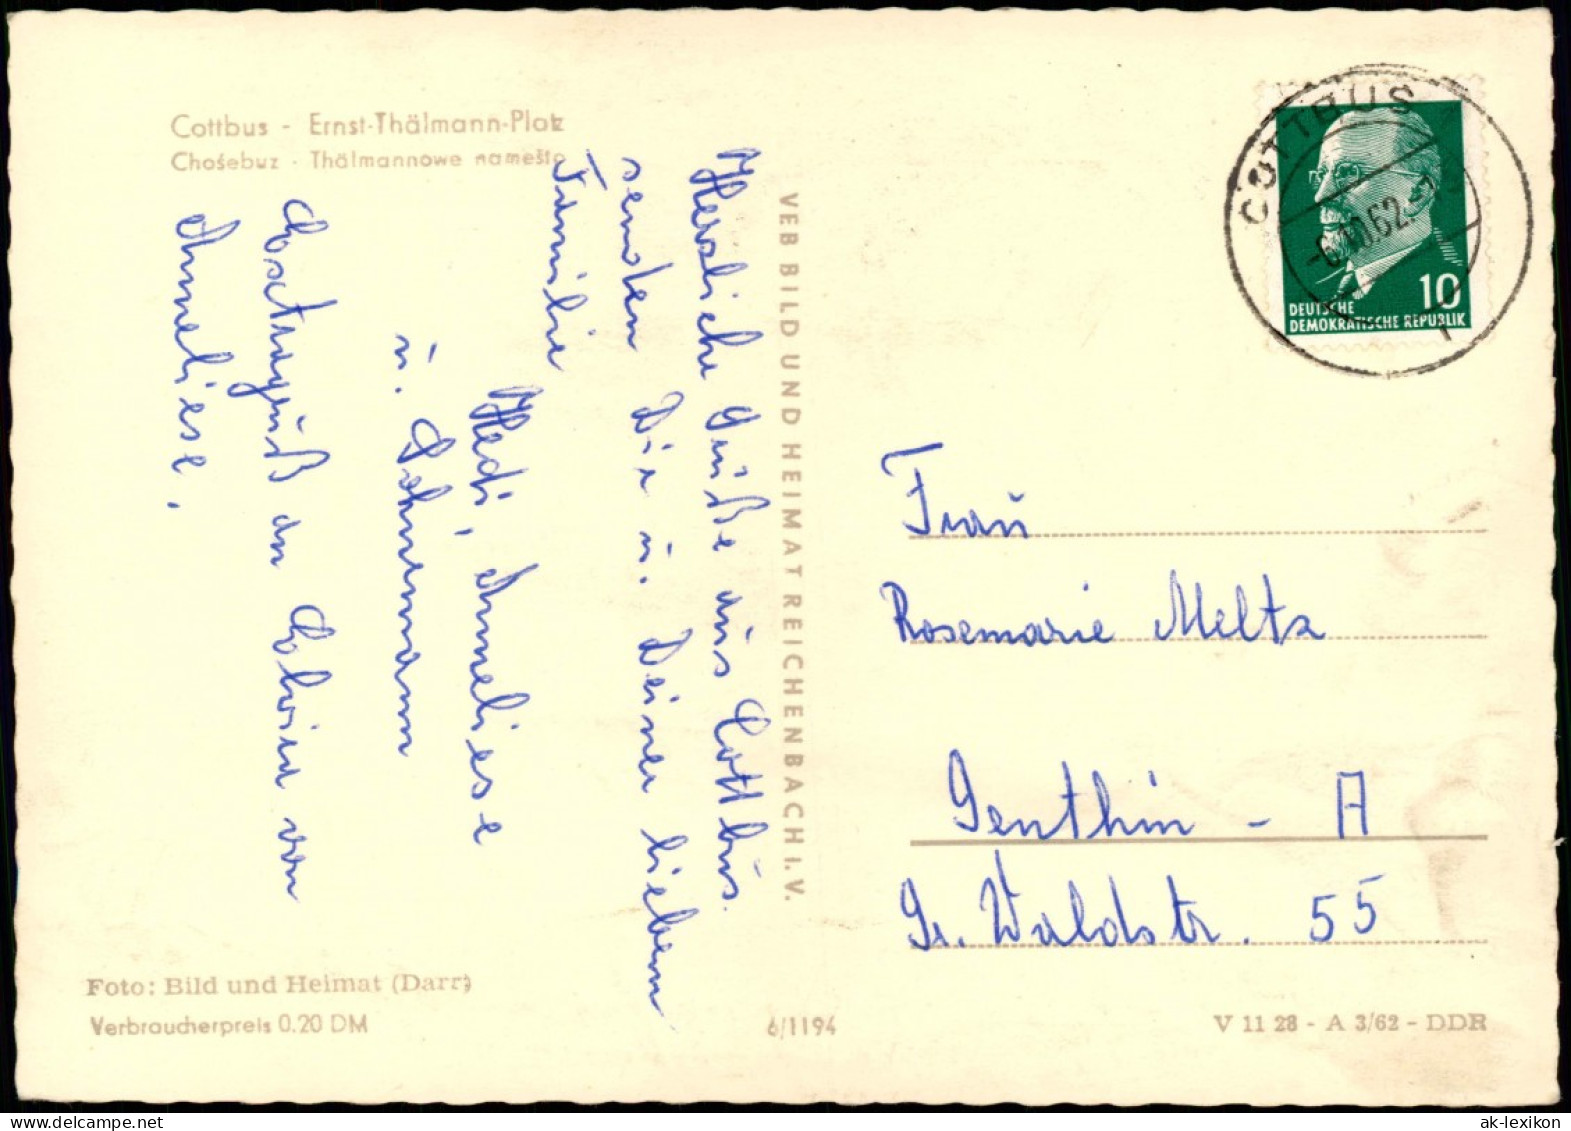 Cottbus - Ernst-Thälmann-Platz
Chośebuz - Thälmannowe naměsto
Herzliche Grüße aus Cottbus
senden Dir u. Deiner lieben
Familie
Hedi, Anneliese
u. Lehmann
Extragruß an von
Anneliese.
VEB BILD UND HEIMAT REICHENBACH I. V.
COTTBUS
1
10
DEUTSCHE
DEMOKRATISCHE REPUBLIK
Frau
Rosemarie Meltz
Genthin - A
Gr. Waldstr. 55
Foto: Bild und Heimat (Darr)
Verbraucherpreis 0.20 DM
6/1194
V 11 28 - A 3/62 - DDR
ak-lexikon